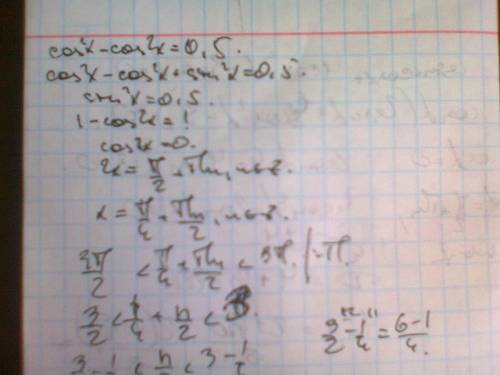 cos²x - cos2x = 0,5.
cos²x - cos²x + sin²x = 0,5.
sin²x = 0,5.
1 - cos2x = 1
cos2x = 0.
2x = π/2 + πn, n∈z.
x = π/4 + πn/2, n∈z.
3π/2 < π/4 + πn/2 < 3π. | :π.
3/2 < 1/4 + n/2 < 3.
3/2 - 1/4 = 6-1/4.
3 - 1 < n < 3 - 1